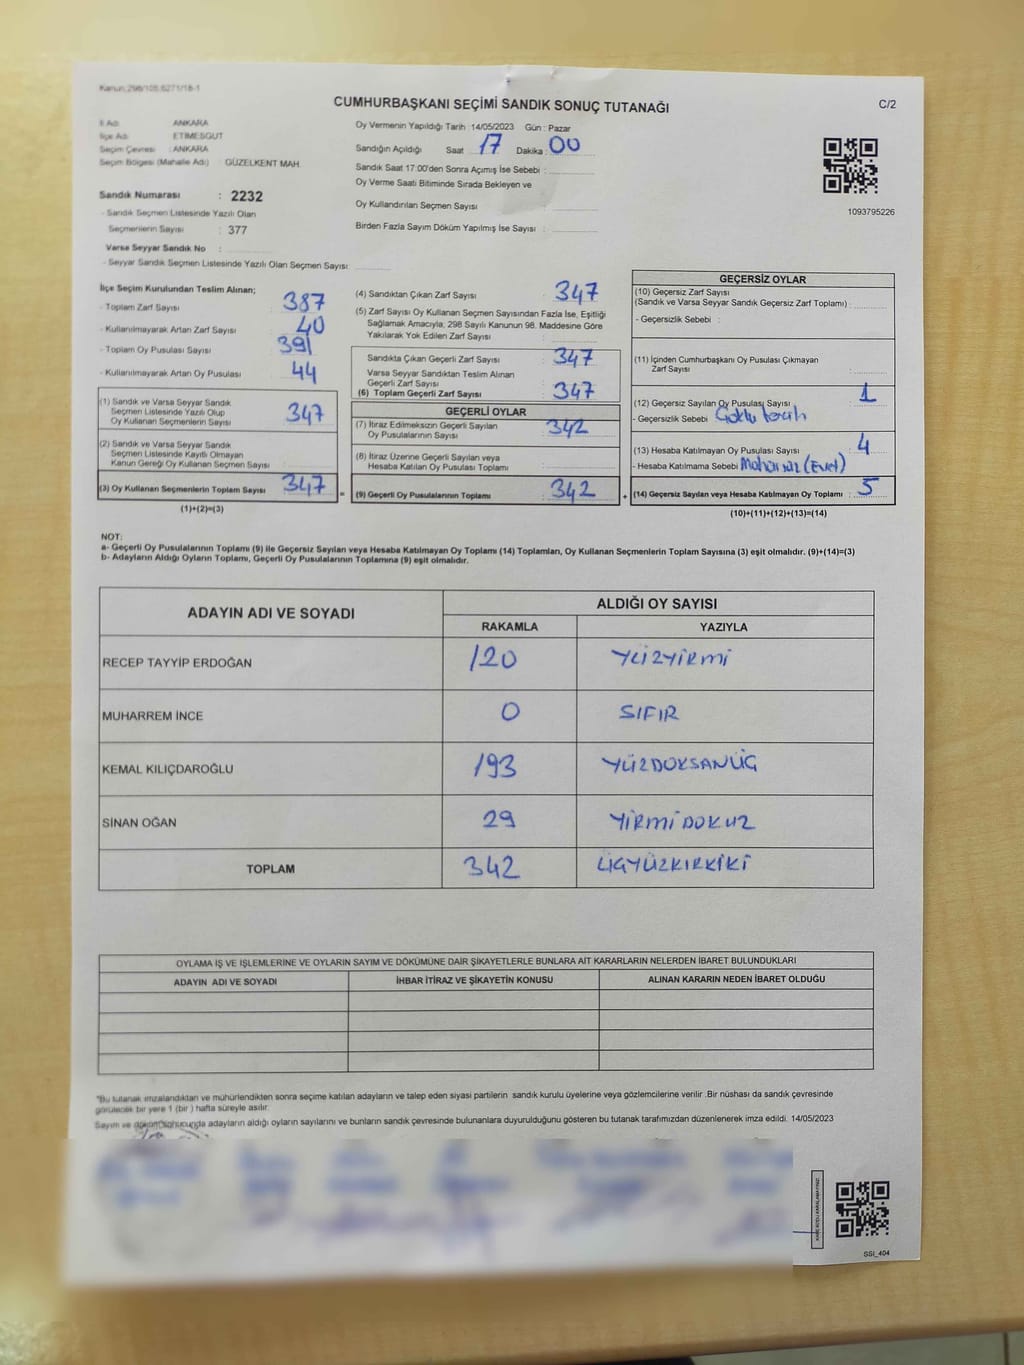 Kanun:298/105,6271/18-1
CUMHURBAŞKANI SEÇİMİ SANDIK SONUÇ TUTANAĞI
C/2
İl Adı : ANKARA
İlçe Adı : ETİMESGUT
Seçim Çevresi : ANKARA
Seçim Bölgesi (Mahalle Adı) : GÜZELKENT MAH.
Sandık Numarası : 2232
- Sandık Seçmen Listesinde Yazılı Olan
Seçmenlerin Sayısı : 377
Varsa Seyyar Sandık No :
- Seyyar Sandık Seçmen Listesinde Yazılı Olan Seçmen Sayısı:
Oy Vermenin Yapıldığı Tarih : 14/05/2023 Gün : Pazar
Sandığın Açıldığı Saat : 17 Dakika : 00
Sandık Saat 17:00'den Sonra Açımış İse Sebebi :
Oy Verme Saati Bitiminde Sırada Bekleyen ve
Oy Kullandırılan Seçmen Sayısı :
Birden Fazla Sayım Döküm Yapılmış İse Sayısı :
1093795226
İlçe Seçim Kurulundan Teslim Alınan;
- Toplam Zarf Sayısı : 387
- Kullanılmayarak Artan Zarf Sayısı : 40
- Toplam Oy Pusulası Sayısı : 391
- Kullanılmayarak Artan Oy Pusulası : 44
(1) Sandık ve Varsa Seyyar Sandık
Seçmen Listesinde Yazılı Olup
Oy Kullanan Seçmenlerin Sayısı : 347
(2) Sandık ve Varsa Seyyar Sandık
Seçmen Listesinde Kayıtlı Olmayan
Kanun Gereği Oy Kullanan Seçmen Sayısı :
(3) Oy Kullanan Seçmenlerin Toplam Sayısı : 347
(1)+(2)=(3)
(4) Sandıktan Çıkan Zarf Sayısı : 347
(5) Zarf Sayısı Oy Kullanan Seçmen Sayısından Fazla İse, Eşitliği
Sağlamak Amacıyla, 298 Sayılı Kanunun 98. Maddesine Göre
Yakılarak Yok Edilen Zarf Sayısı :
Sandıkta Çıkan Geçerli Zarf Sayısı : 347
Varsa Seyyar Sandıktan Teslim Alınan
Geçerli Zarf Sayısı :
(6) Toplam Geçerli Zarf Sayısı : 347
GEÇERLİ OYLAR
(7) İtiraz Edilmeksizin Geçerli Sayılan
Oy Pusulalarının Sayısı : 342
(8) İtiraz Üzerine Geçerli Sayılan veya
Hesaba Katılan Oy Pusulası Toplamı :
= (9) Geçerli Oy Pusulalarının Toplamı : 342 +
GEÇERSİZ OYLAR
(10) Geçersiz Zarf Sayısı
(Sandık ve Varsa Seyyar Sandık Geçersiz Zarf Toplamı) :
- Geçersizlik Sebebi :
(11) İçinden Cumhurbaşkanı Oy Pusulası Çıkmayan
Zarf Sayısı :
(12) Geçersiz Sayılan Oy Pusulası Sayısı : 1
- Geçersizlik Sebebi : Çoklu tercih
(13) Hesaba Katılmayan Oy Pusulası Sayısı : 4
- Hesaba Katılmama Sebebi : Mühürsüz (Evet)
(14) Geçersiz Sayılan veya Hesaba Katılmayan Oy Toplamı : 5
(10)+(11)+(12)+(13)=(14)
NOT:
a- Geçerli Oy Pusulalarının Toplamı (9) ile Geçersiz Sayılan veya Hesaba Katılmayan Oy Toplamı (14) Toplamları, Oy Kullanan Seçmenlerin Toplam Sayısına (3) eşit olmalıdır. (9)+(14)=(3)
b- Adayların Aldığı Oyların Toplamı, Geçerli Oy Pusulalarının Toplamına (9) eşit olmalıdır.
ADAYIN ADI VE SOYADI
ALDIĞI OY SAYISI
RAKAMLA YAZIYLA
RECEP TAYYİP ERDOĞAN 120 YÜZYİRMİ
MUHARREM İNCE 0 SIFIR
KEMAL KILIÇDAROĞLU 193 YÜZDOKSANÜÇ
SİNAN OĞAN 29 YİRMİDOKUZ
TOPLAM 342 ÜÇYÜZKIRKİKİ
OYLAMA İŞ VE İŞLEMLERİNE VE OYLARIN SAYIM VE DÖKÜMÜNE DAİR ŞİKAYETLERLE BUNLARA AİT KARARLARIN NELERDEN İBARET BULUNDUKLARI
ADAYIN ADI VE SOYADI İHBAR İTİRAZ VE ŞİKAYETİN KONUSU ALINAN KARARIN NEDEN İBARET OLDUĞU
"Bu tutanak imzalandıktan ve mühürlendikten sonra seçime katılan adayların ve talep eden siyasi partilerin sandık kurulu üyelerine veya gözlemcilerine verilir .Bir nüshası da sandık çevresinde
görülecek bir yere 1 (bir ) hafta süreyle asılır.
Sayım ve döküm sonucunda adayların aldığı oyların sayılarını ve bunların sandık çevresinde bulunanlara duyurulduğunu gösteren bu tutanak tarafımızdan düzenlenerek imza edildi. 14/05/2023
SSİ_404